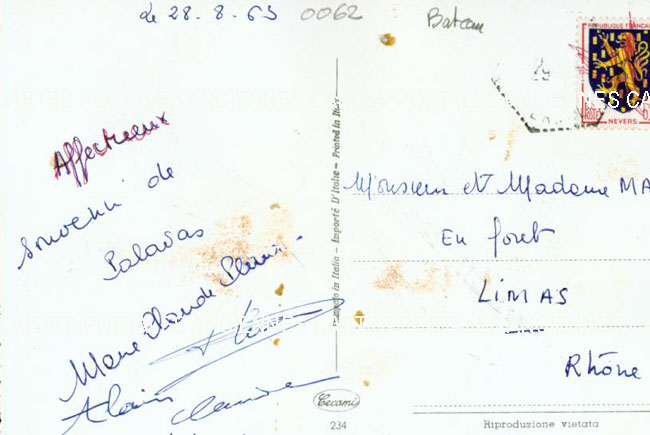 le 28.8.63 0062
Bateau
Affectueux
Souvenir de
Palavas
Marie Claude
Alain Claudine
Printed in Italy – Importé D'Italie – Printed in Italy
Cecami
234
REPUBLIQUE FRANÇAISE
POSTES
NEVERS
29
Monsieur et Madame MA
En foret
LIMAS
Rhône
Riproduzione vietata
CARTES POSTALES ANCIENNES